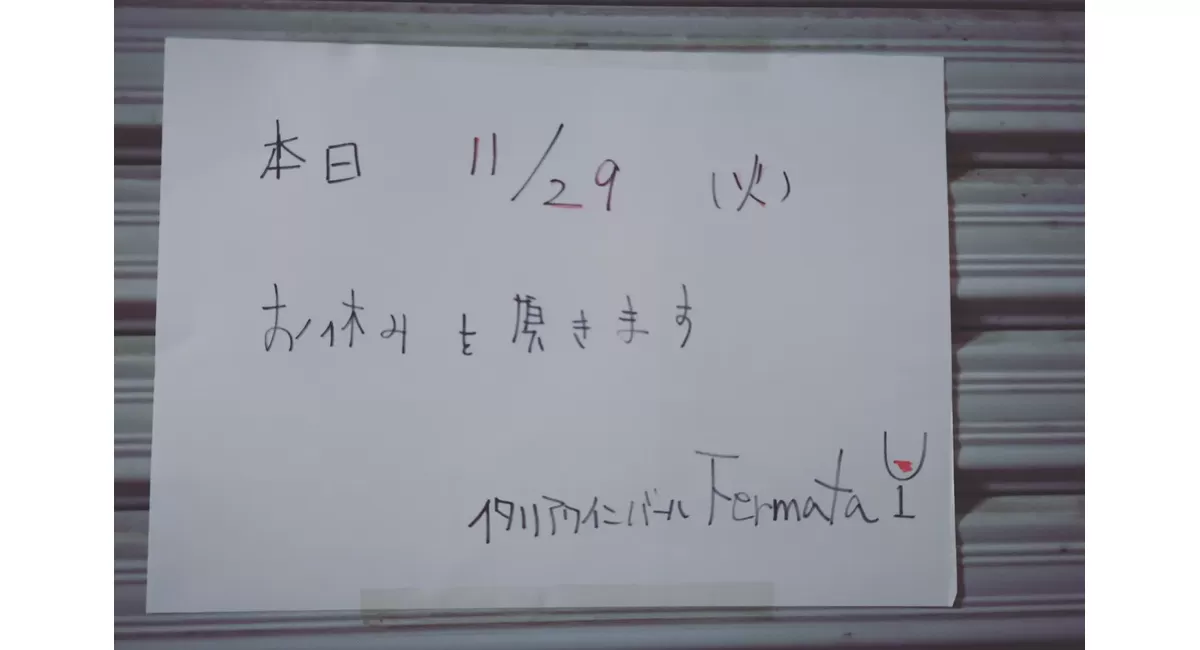 本日 11/29 (火)
お休みを頂きます
イタリアワインバール Fermata